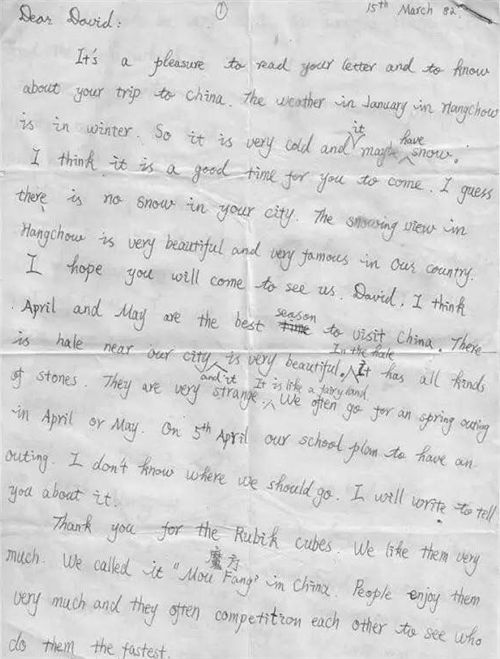 ① 15th March 82.
Dear David:
It's a pleasure to read your letter and to know
about your trip to China. The weather in January in Hangchow
is in winter. So it is very cold and it maybe have snow.
I think it is a good time for you to come. I guess
there is no snow in your city. The snowing view in
Hangchow is very beautiful and very famous in our country.
I hope you will come to see us. David, I think
April and May are the best time season to visit China. There
is hale near our city and it is very beautiful. In the hale It has all kinds
of stones. They are very strange. It is like a fairyland We often go for an spring outing
in April or May. On 5th April our school plan to have an
outing. I don't know where we should go. I will write to tell
you about it.
Thank you for the Rubik cubes. We like them very
much. We called it "Mou Fang" 魔方 in China. People enjoy them
very much and they often competition each other to see who
do them the fastest.